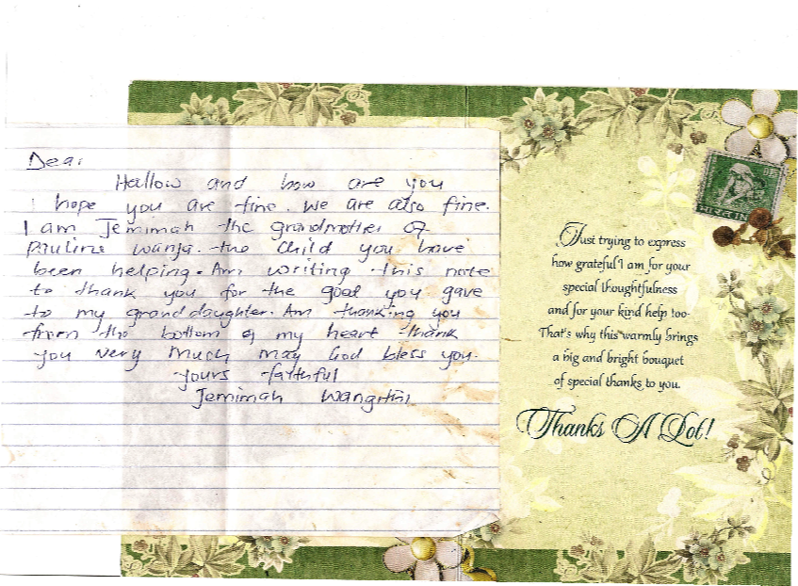 Dear
Hallow and how are you
I hope you are fine. we are also fine.
I am Jemimah the grandmother of
Pauline Wanja. the child you have
been helping. Am writing this note
to thank you for the good you gave
to my granddaughter. Am thanking you
from the bottom of my heart thank
you very much may God bless you.
yours faithful
Jemimah
Just trying to express
how grateful I am for your
special thoughtfulness
and for your kind help too.
That's why this warmly brings
a big and bright bouquet
of special thanks to you.
Thanks A Lot!
भारत INDIA